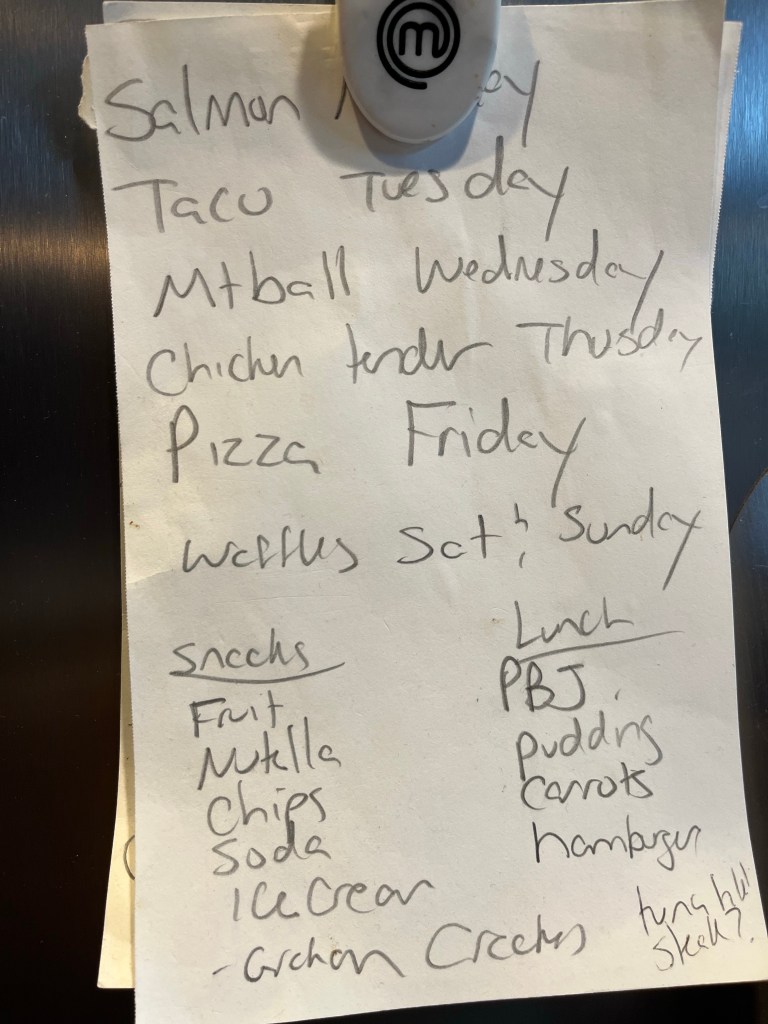 Salmon
Taco Tuesday
Mtball Wednesday
Chicken tender Thusday
Pizza Friday
Waffles Sat & Sunday
Snacks
Fruit
Nutella
Chips
Soda
Ice Cream
- Graham Crackers
Lunch
PBJ
pudding
Carrots
hamburger
tuna
steak?
m